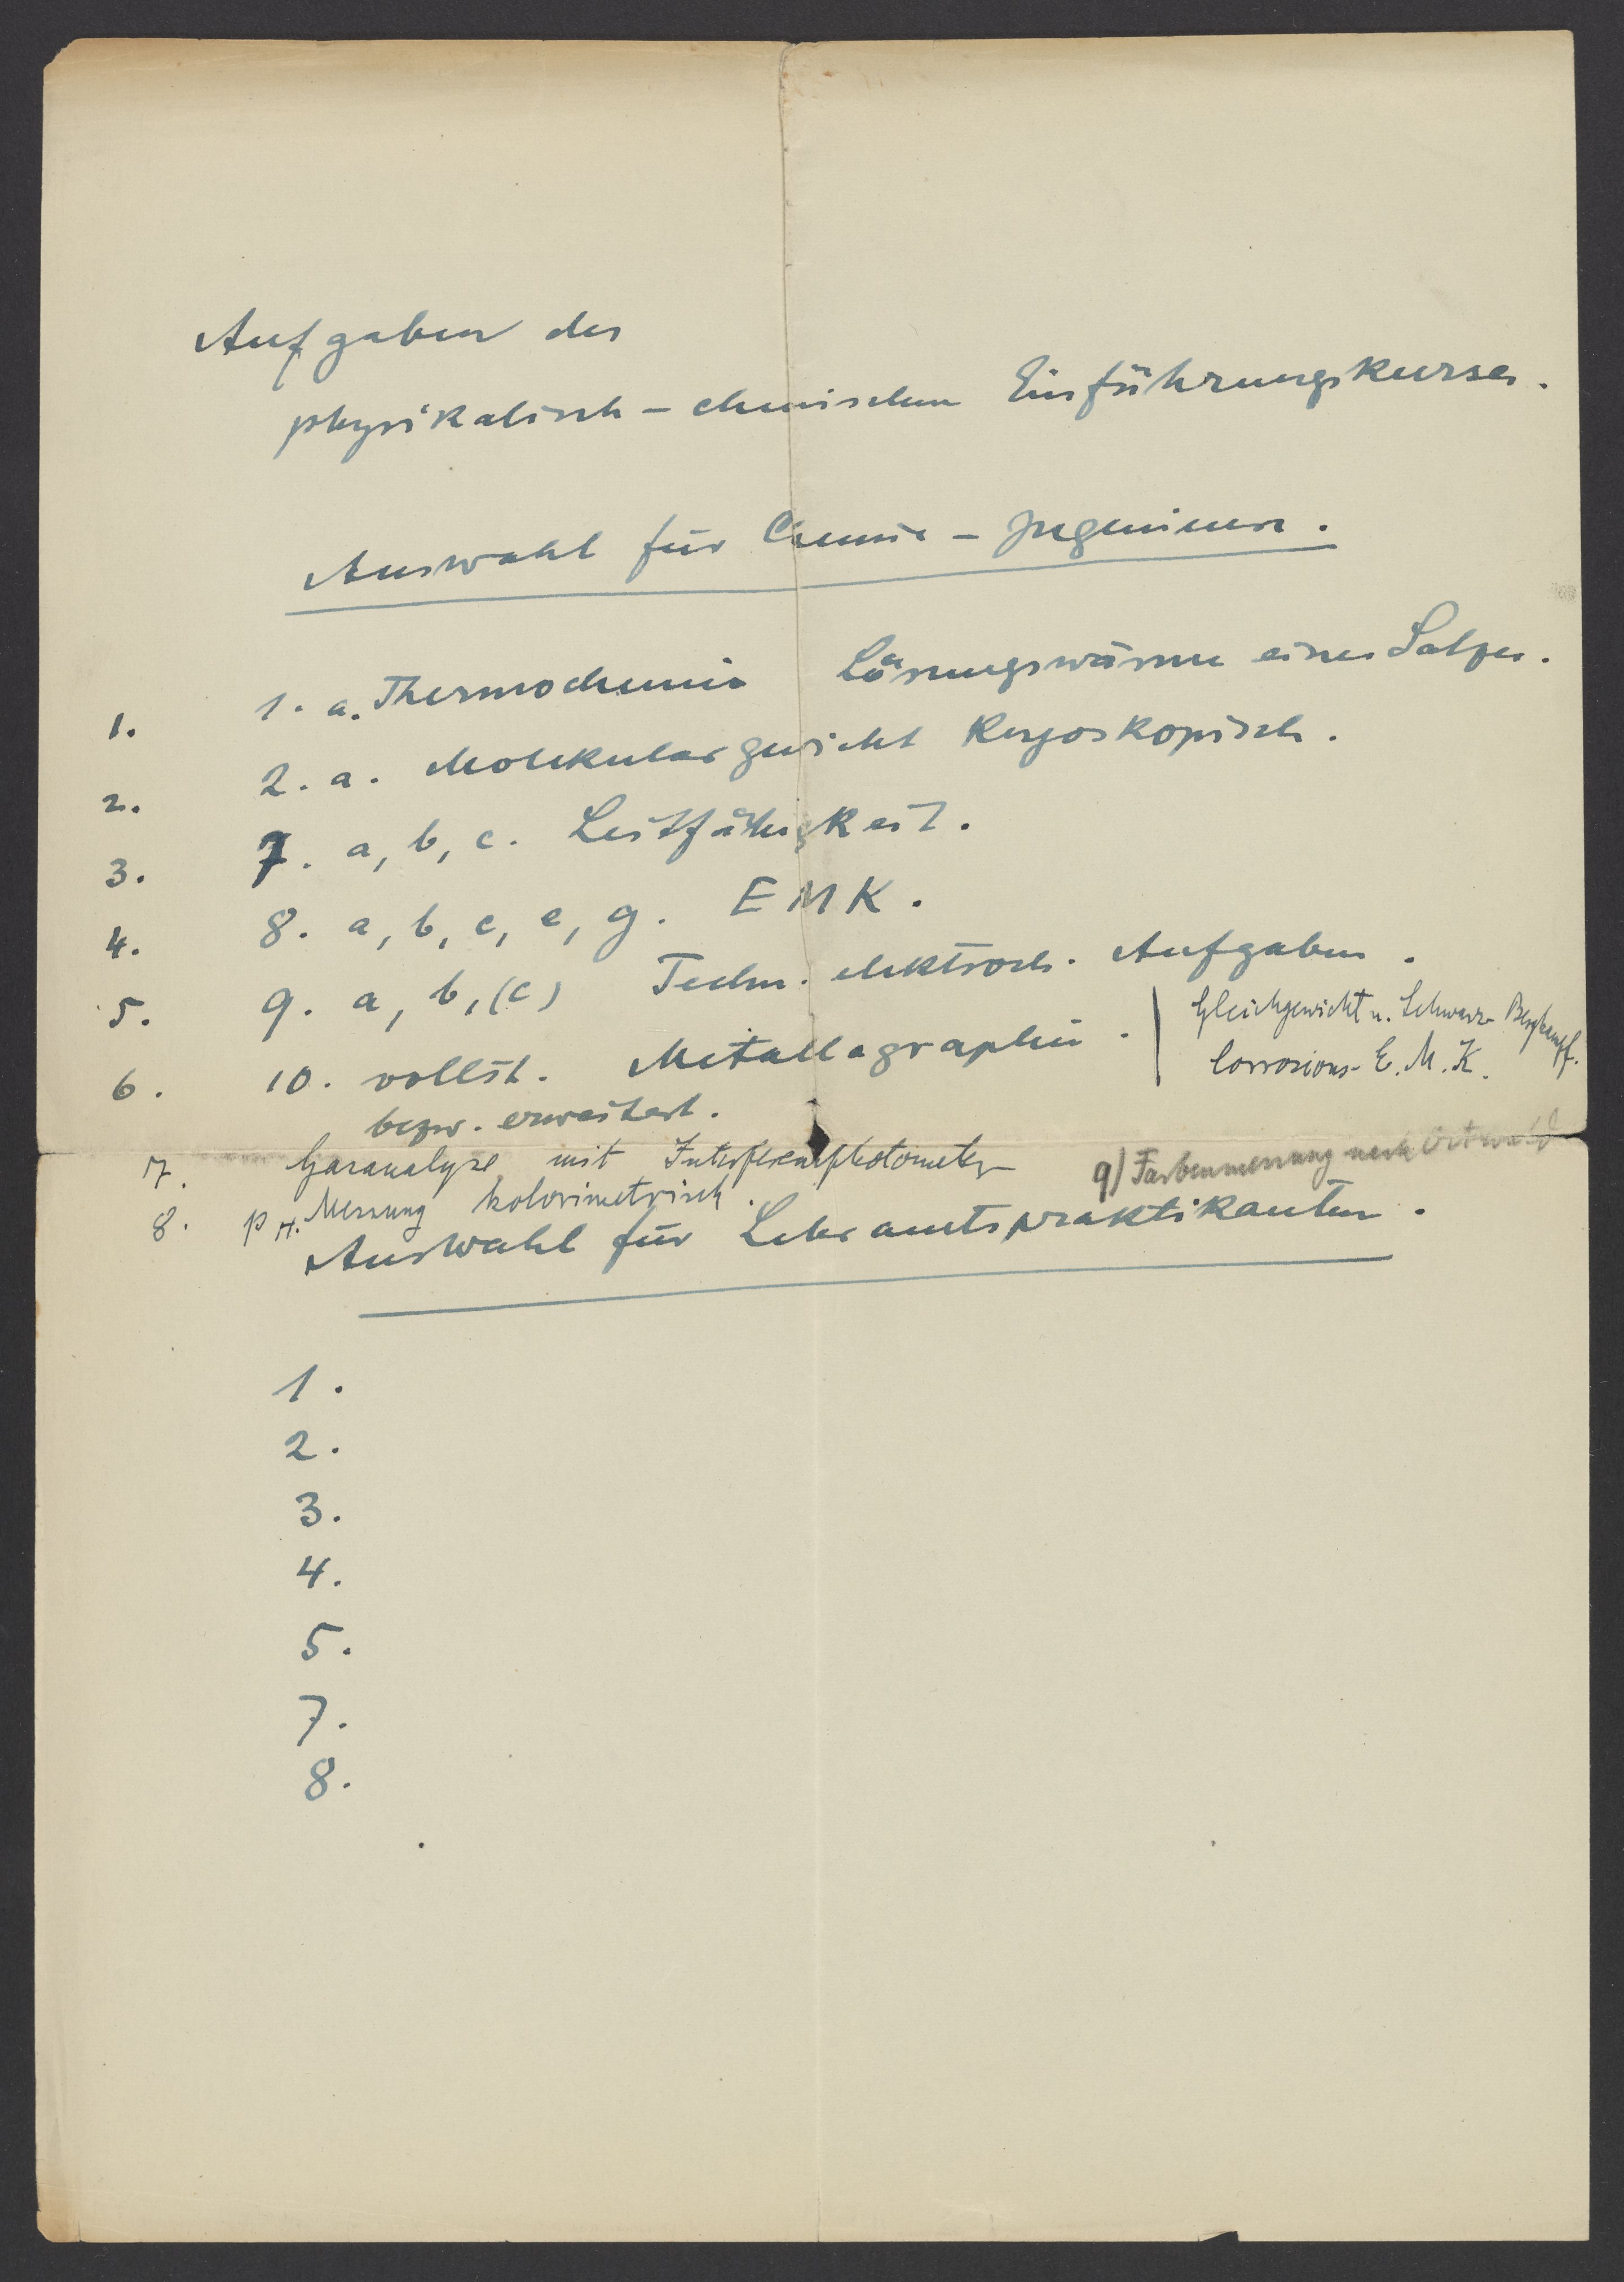 Aufgaben des
physikalisch-chemischen Einführungskurses.
Auswahl für Chemie-Ingenieure.
1. 1. a. Thermochemie Lösungswärme eines Salzes.
2. 2. a. Molekulargewicht kryoskopisch.
3. 7. a, b, c. Leitfähigkeit.
4. 8. a, b, c, e, g. EMK.
5. 9. a, b, (c) Techn. elektroch. Aufgaben.
6. 10. vollst. Metallographie. | Gleichgewicht n. Schwarz
Corrosions-E.M.K.
bezw. erweitert.
7. Gasanalyse mit Interferenzphotometer
9) Farbenmessung nach Ostwald
8. pH. Messung kolorimetrisch.
Auswahl für Lehramtspraktikanten.
1.
2.
3.
4.
5.
7.
8.